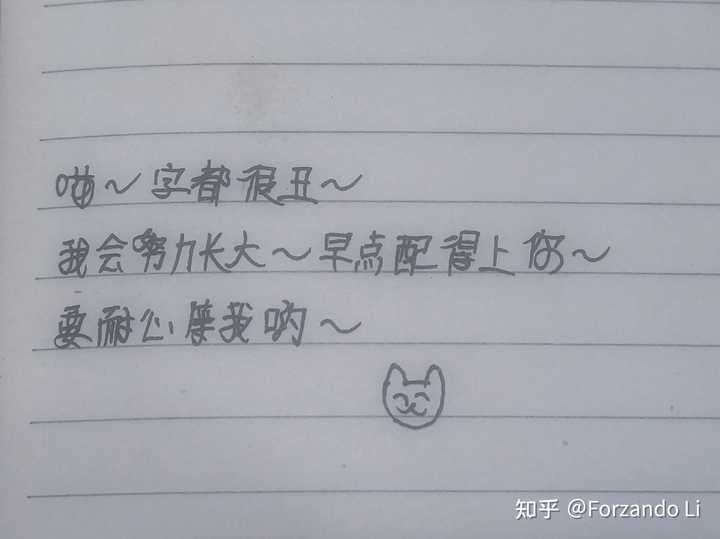 喵～字都很丑～
我会努力长大～早点配得上你～
要耐心等我哟～
知乎 @Forzando Li